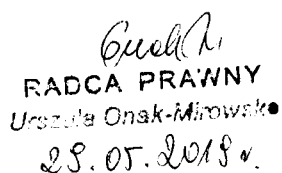 RADCA PRAWNY
Urszula Onak-Mirowska
29.05.2019 r.